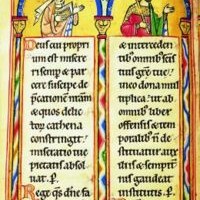 Deus cui propri
um est misere
ri semp & par
cere suscipe de
p̄cationē nr̄am
& quos delic
toꝝ cathena
constringit
miseratio tue
pietatis absol
uat. P.
Rege qs dn̄e fa
& interceden
tib; omnib; sc̄is
tuis gr̄e tue
dona mul
tiplica. ut ab
omnib; liber
offensis & tem
poralib; n̄ de
stituatur aux
iliis & sempit
nis gaudeat
institutis. P.